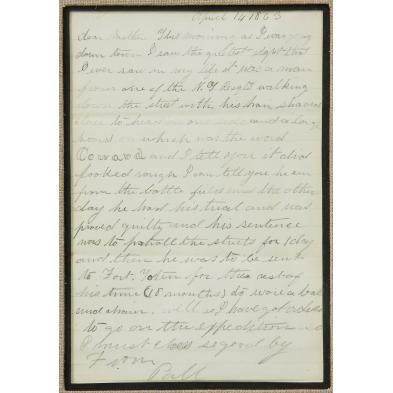 April 14 1863
dear Mother This morning as I was going
down town I saw the quirest sight that
I ever saw in my life it was a man
from one of the N.Y Regts walking
down the street with his hair shaved
close to head on one side and a large
board on which was the word
Coward and I tell you it did
looked rough I can tell you he run
from the battle field and the other
day he had his trial and was
proved guilty and his sentence
was to patroll the streets for 1 day
and then he was to be sent
to Fort. for the rest of
his time (18 months) to wore a ball
and chain. well as I have got orders
to go on the expedition so
I must close so good by
From